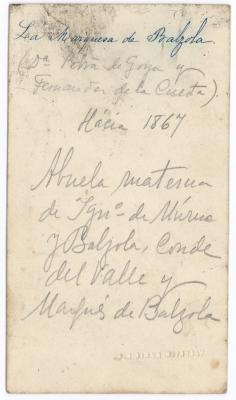 La Marquesa de Balzola.
(Dª Petra de Goya y
Fernandez de la Cuesta).
Hácia 1867
Abuela materna
de Ignº de Múrua
y Balzola, Conde
del Valle y
Marqués de Balzola